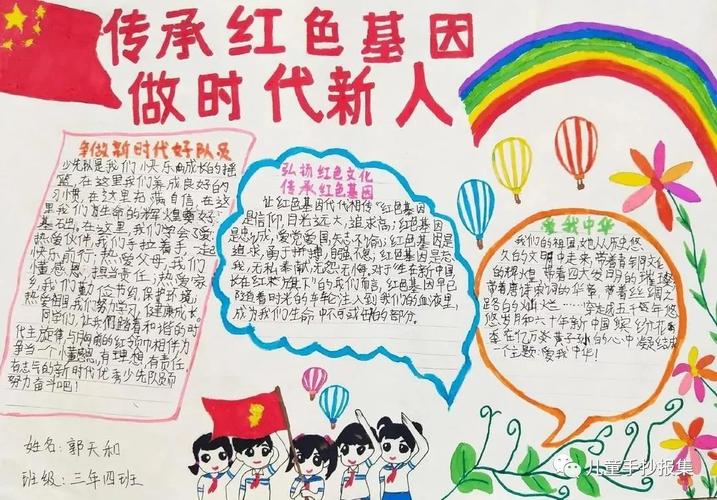 传承红色基因
做时代新人
争做新时代好队员
少先队是我们快乐成长的摇
篮,在这里我们养成良好的
习惯,在这里充满自信,在这
里我们
基石
热爱伙伴,我们手拉着手,一起
快乐前行;热爱父母,我们
懂感恩、担当责任;热爱家
乡,我们勤俭节约,保护环境;
热爱祖国,我们努力学习,健康成长。
同学们,让我们踏着和谐的时
代主旋律,与胸前的红领巾相伴,力
争当一个懂感恩,有理想,有责任,
有志气的新时代优秀少先队员而
努力奋斗吧!
弘扬红色文化
传承红色基因
让红色基因代代相传"红色基因
是信仰,目光远大,追求高;红色基因
是忠诚,爱党爱国,矢志不偷;红色基因是
追求,勇于拼搏,自强不
我,无私奉献,无怨无悔,对于生在新中国
长在红旗下"的我们而言,红色基因早已
随着时光的车轮注入到我们的血液里,
成为我们生命中不可或缺的部分。
爱我中华
我们的祖国,她从历史悠
久的文明中走来,带着青铜文化
的辉煌,带着四大发明的璀璨
带着唐诗宋词的华章,带着丝绸之
路的灿烂……学生民五千载年悠
悠岁月和六十年新中国缤纷花
季在亿万炎黄子孙的心中凝结成
一个主题:爱我中华!
姓名:郭天和
班级:三年四班
儿童手抄报集